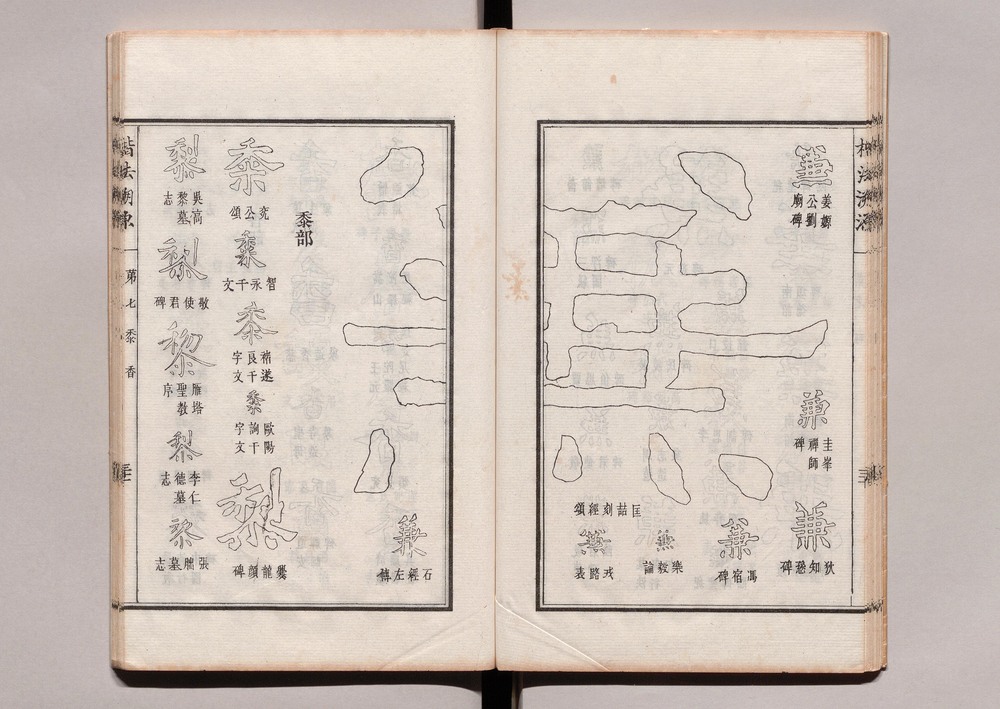 楷法溯源
兼
姜嫄公劉廟碑
兼
圭峯禪師碑
兼
狄知愻碑
兼
馮宿碑
兼
樂毅論
兼
戎路表
匡喆刻經頌
兼
石經左傳
黍部
黍
兖公頌
黍
智永千文
黍
褚遂良千字文
黍
歐陽詢千字文
黎
爨龍顏碑
黎
吳高黎墓志
黎
敬使君碑
黎
雁塔聖教序
黎
李仁德墓志
黎
張朏墓志
楷法溯源
第七
黍
香